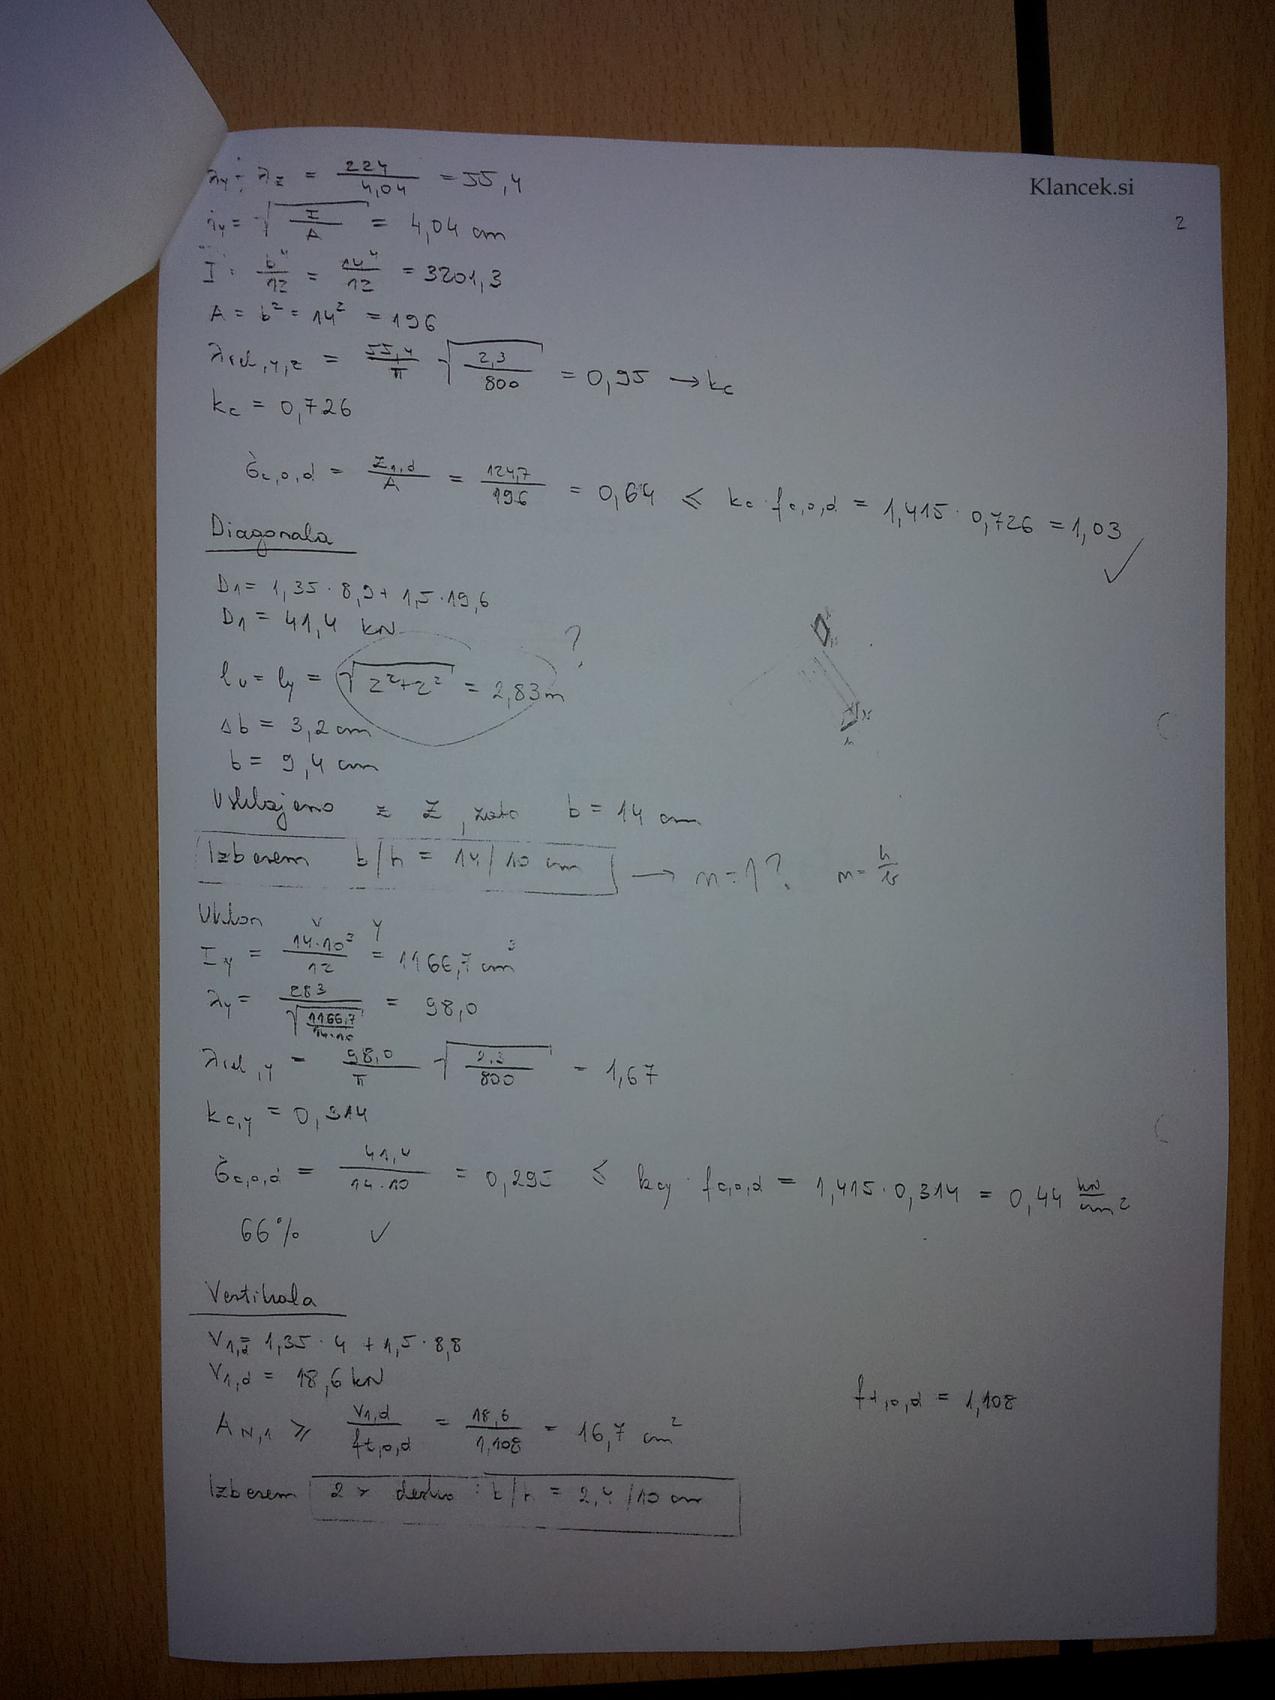 Klancek.si
2
λy = λz = 224/4,04 = 55,4
iy = √(I/A) = 4,04 cm
I = b⁴/12 = 14⁴/12 = 3201,3
A = b² = 14² = 196
λrel,y,z = 55,4/π √(2,3/800) = 0,95 → kc
kc = 0,726
σc,0,d = Z1,d/A = 124,7/196 = 0,64 ≤ kc · fc,0,d = 1,415 · 0,726 = 1,03 ✓
Diagonala
D1 = 1,35 · 8,9 + 1,5 · 19,6
D1 = 41,4 kN
lu = ly = √(2²+2²) = 2,83m ?
Δb = 3,2 cm
b = 9,4 cm
Usklajeno z Z, zato b = 14 cm
Izberem b/h = 14/10 cm → n=1? n=
Uklon
Iy = 14·10³/12 = 1166,7 cm³
λy = 283/√(1166,7/14·10) = 98,0
λrel,y = 98,0/π √(2,3/800) = 1,67
kc,y = 0,314
σc,0,d = 41,4/14·10 = 0,295 ≤ kcy · fc,0,d = 1,415 · 0,314 = 0,44 kN/cm²
66% ✓
Vertikala
V1,d = 1,35 · 4 + 1,5 · 8,8
V1,d = 18,6 kN
ft,0,d = 1,108
AN,1 ≥ V1,d/ft,0,d = 18,6/1,108 = 16,7 cm²
Izberem 2 × deska : b/h = 2,4/10 cm